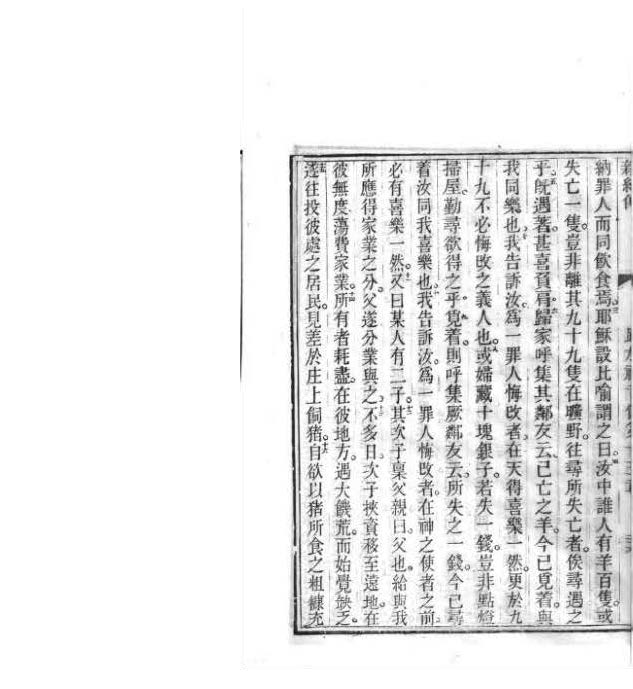 納罪人而同飲食焉耶穌設比喻謂之曰汝中誰人有羊百隻或
失亡一隻豈非離其九十九隻在曠野往尋所失亡者俟尋遇之
乎旣遇著甚喜負肩歸家呼集其鄰友云已亡之羊今已覓着與
我同樂也我告訴汝爲一罪人悔改者在天得喜樂一然更於九
十九不必悔改之義人也或婦藏十塊銀子若失一錢豈非點燈
掃屋勤尋欲得之乎覓着則呼集厥鄰友云所失之一錢今已尋
着汝同我喜樂也我告訴汝爲一罪人悔改者在神之使者之前
必有喜樂一然又曰某人有二子其次子稟父親曰父也給與我
所應得家業之分父遂分業與之不多日次子挾資移至遠地在
彼無度蕩費家業所有者耗盡在彼地方遇大饑荒而始覺缺乏
遂往投彼處之居民見差於庄上伺豬自欲以豬所食之粗糠充